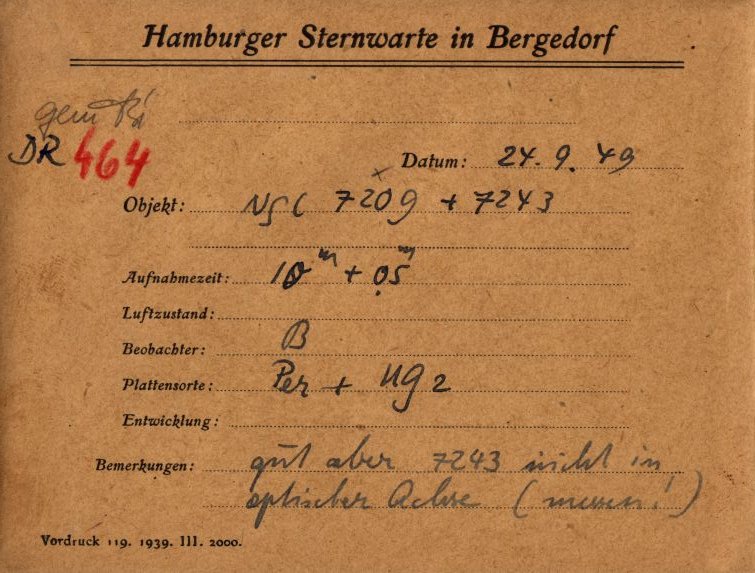 Hamburger Sternwarte in Bergedorf
gem
DR 464
Datum: 24. 9. 49
Objekt: NGC 7209 + 7243
Aufnahmezeit: 10 m + 0.5 m
Luftzustand:
Beobachter: B
Plattensorte: Per + UG 2
Entwicklung:
Bemerkungen: gut aber 7243 nicht in
optischer Achse (messen!)
Vordruck 119. 1939. III. 2000.